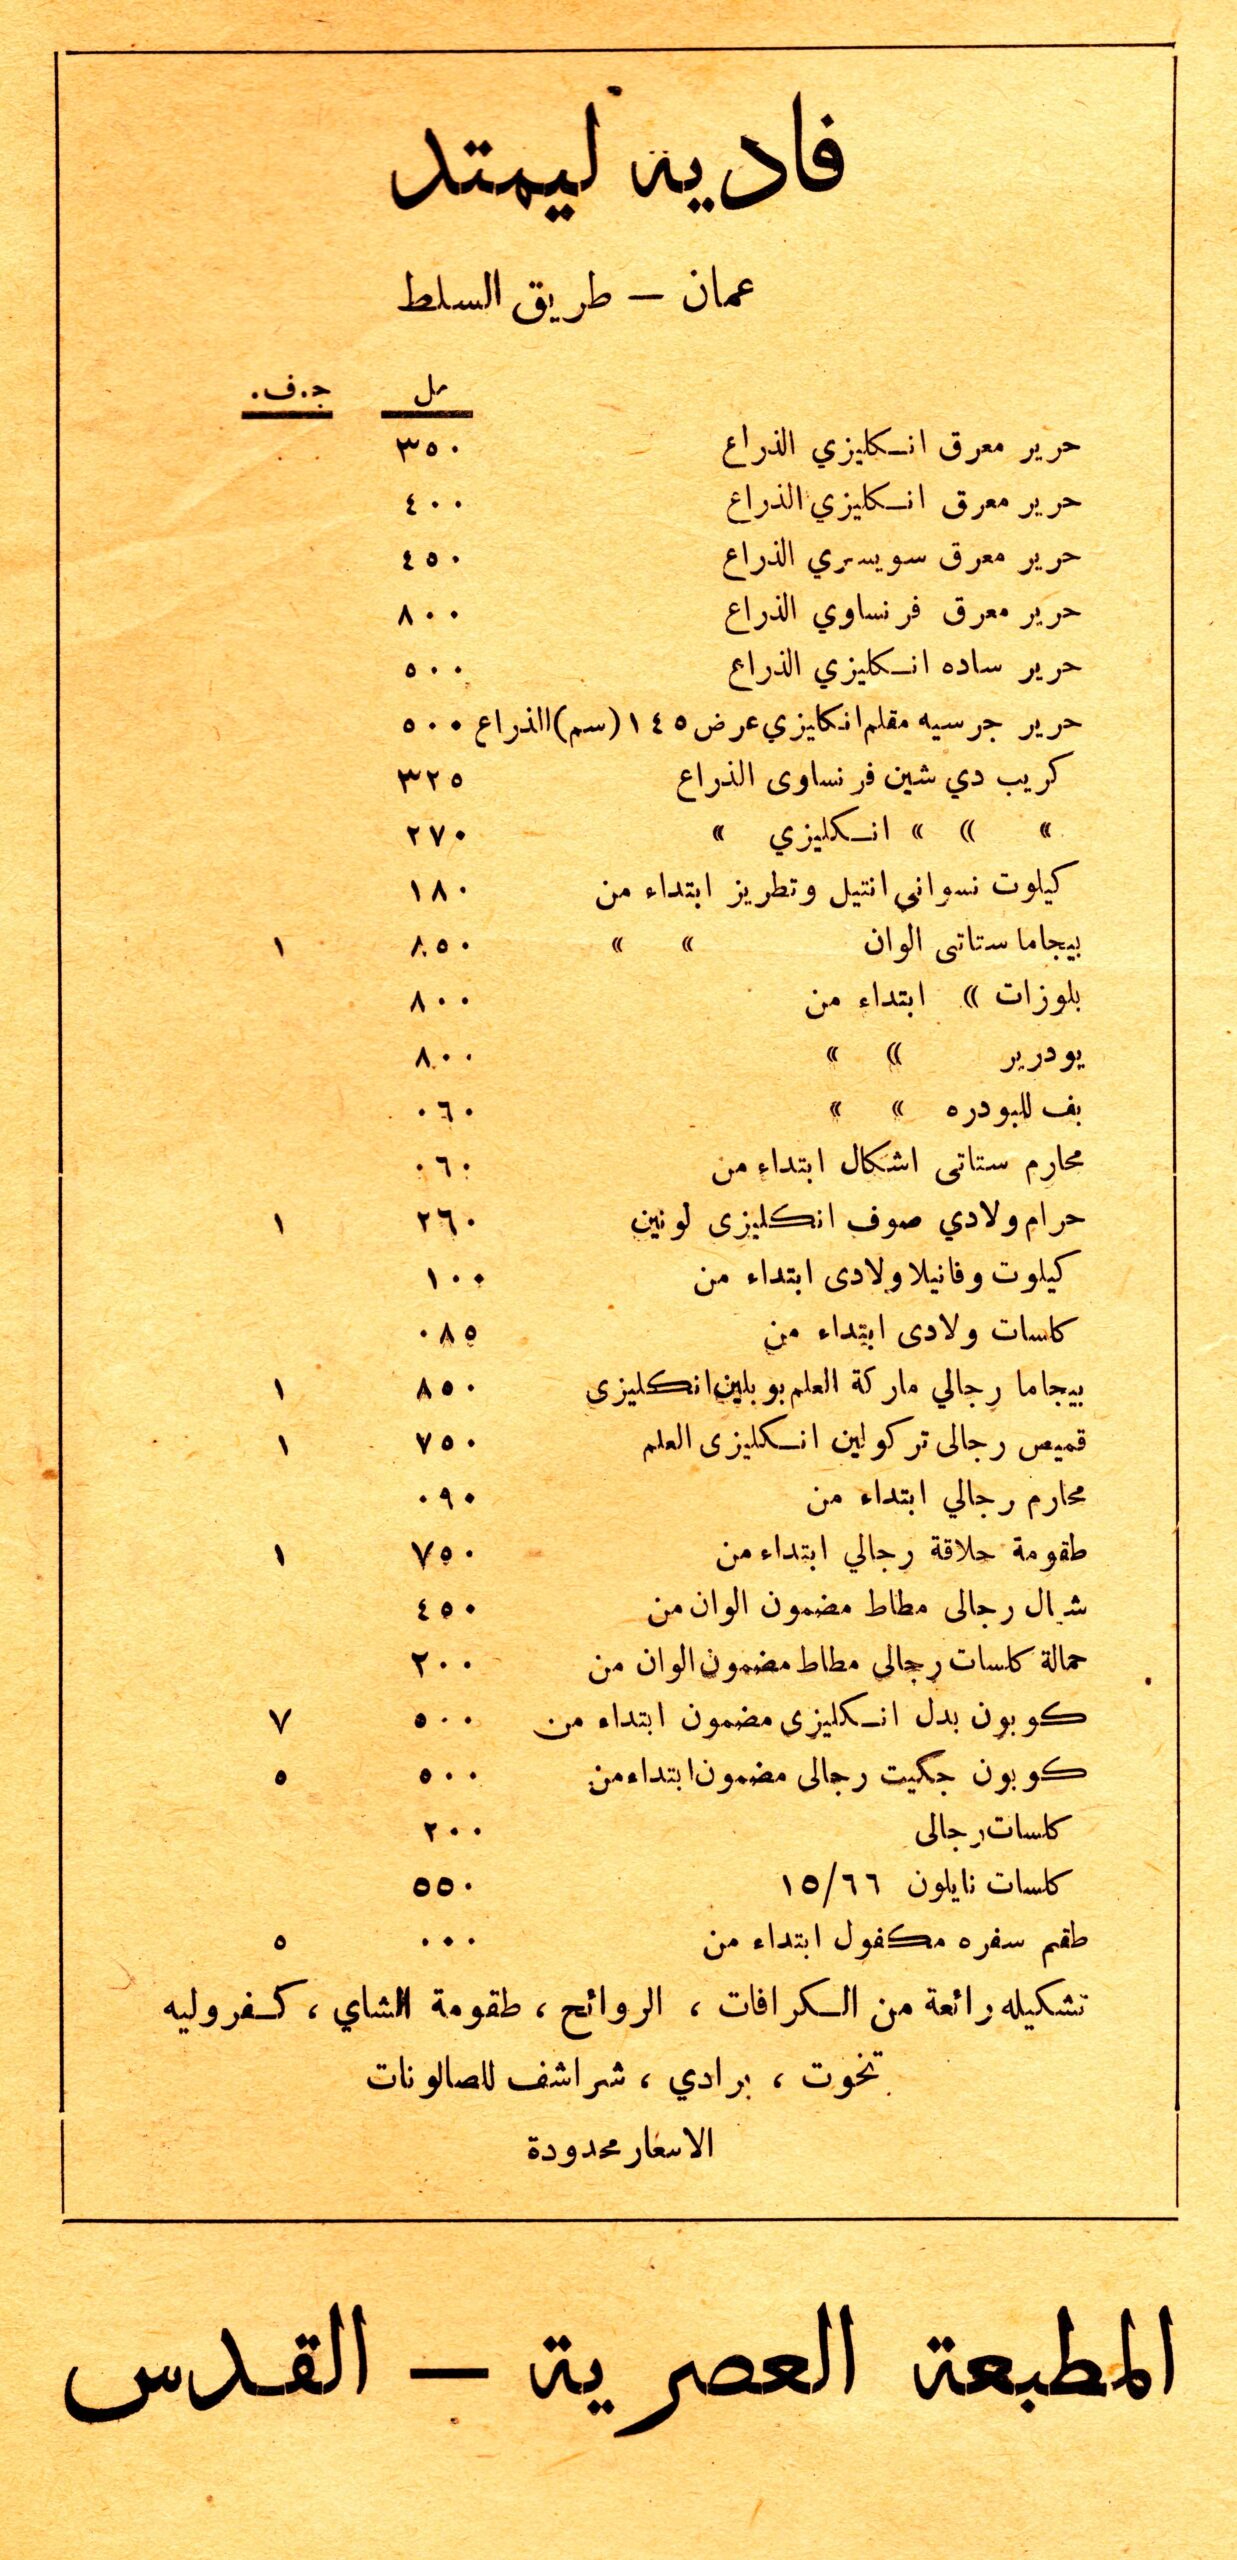 فاديه ليمتد
عمان — طريق السلط
مل ج.ف.
حرير معرق انكليزي الذراع ٣٥٠
حرير معرق انكليزي الذراع ٤٠٠
حرير معرق سويسري الذراع ٤٥٠
حرير معرق فرنساوي الذراع ٨٠٠
حرير ساده انكليزي الذراع ٥٠٠
حرير جرسيه مقلم انكليزي عرض ١٤٥ (سم) الذراع ٥٠٠
كريب دي شين فرنساوى الذراع ٣٢٥
» » » انكليزي » ٢٧٠
كيلوت نسواني انتيل وتطريز ابتداء من ١٨٠
بيجاما ستاتى الوان » » ٨٥٠ ١
بلوزات » ابتداء من ٨٠٠
يودرير » » ٨٠٠
بف للبودره » » ٠٦٠
محارم ستاتى اشكال ابتداء من ٠٦٠
حرام ولادي صوف انكليزى لونين ٢٦٠ ١
كيلوت وفانيلا ولادى ابتداء من ١٠٠
كلسات ولادى ابتداء من ٠٨٥
بيجاما رجالي ماركة العلم بوبلين انكليزى ٨٥٠ ١
قميص رجالى تركولين انكليزى العلم ٧٥٠ ١
محارم رجالي ابتداء من ٠٩٠
طقومة حلاقة رجالي ابتداء من ٧٥٠ ١
شيال رجالى مطاط مضمون الوان من ٤٥٠
حمالة كلسات رجالى مطاط مضمون الوان من ٢٠٠
كوبون بدل انكليزى مضمون ابتداء من ٥٠٠ ٧
كوبون جكيت رجالى مضمون ابتداء من ٥٠٠ ٥
كلسات رجالى ٢٠٠
كلسات نايلون ١٥/٦٦ ٥٥٠
طقم سفره مكفول ابتداء من ٠٠٠ ٥
تشكيله رائعة من الكرافات ، الروائح ، طقومة الشاي ، كفروليه
تخوت ، برادي ، شراشف للصالونات
الاسعار محدودة
المطبعة العصرية — القدس